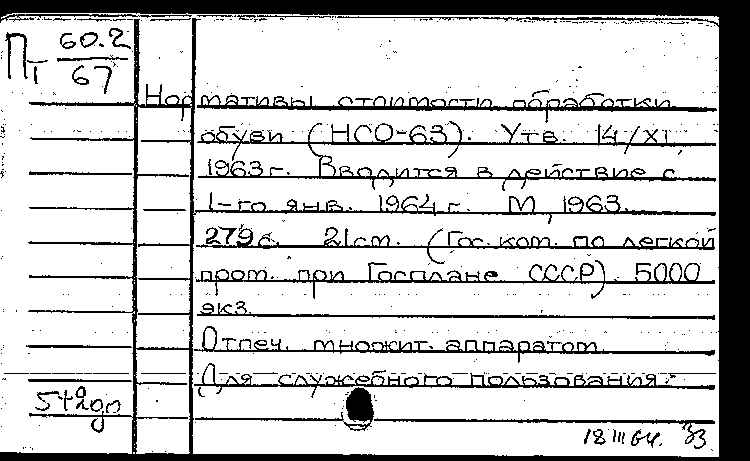 Пт 60.2
67
Нормативы стоимости обработки
обуви (НСО-63). Утв. 14/XI
1963г. Вводится в действие с
1-го янв. 1964г. М, 1963.
279с. 21см. (Гос. ком. по легкой
пром. при Госплане СССР). 5000
экз.
Отпеч. множит. аппаратом.
Для служебного пользования.
542дп
18 III 64.